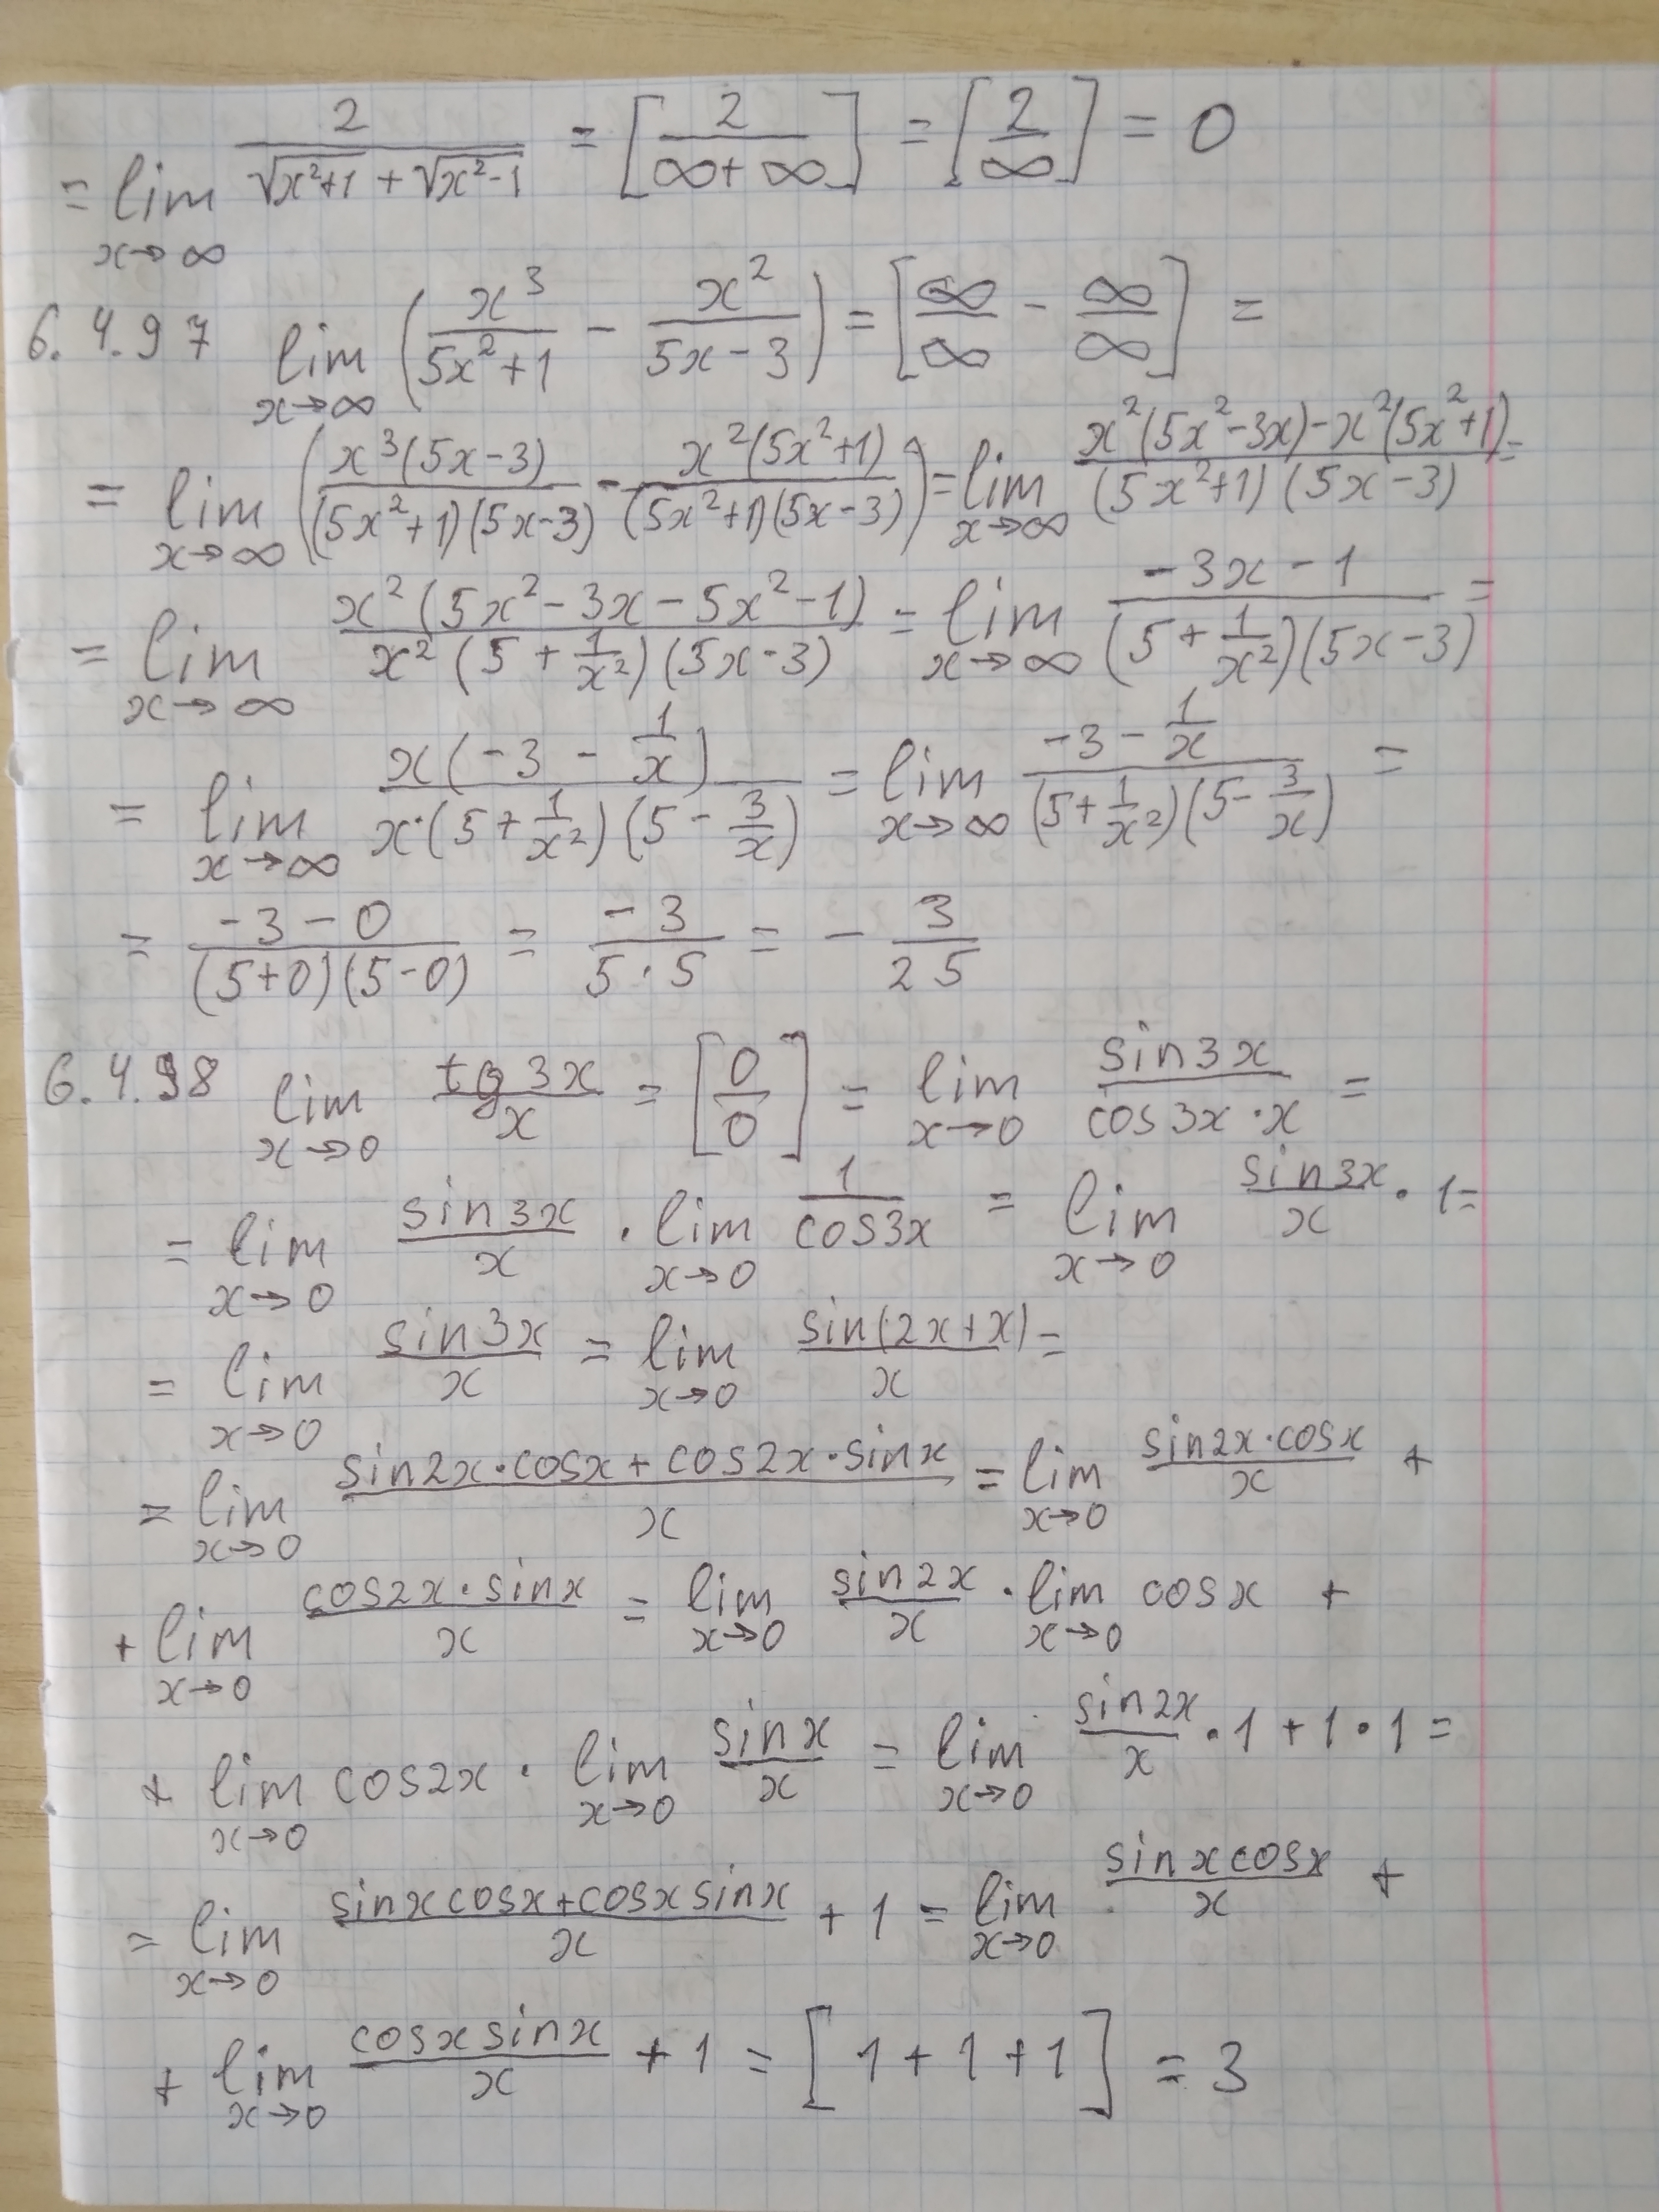 = lim_{x→∞} 2/(√(x²+1) + √(x²-1)) = [2/(∞+∞)] = [2/∞] = 0
6.4.97 lim_{x→∞} (x³/(5x²+1) - x²/(5x-3)) = [∞/∞ - ∞/∞] =
= lim_{x→∞} (x³(5x-3)/((5x²+1)(5x-3)) - x²(5x²+1)/((5x²+1)(5x-3))) = lim_{x→∞} (x²(5x²-3x)-x²(5x²+1))/((5x²+1)(5x-3)) =
= lim_{x→∞} x²(5x²-3x-5x²-1)/(x²(5+1/x²)(5x-3)) = lim_{x→∞} (-3x-1)/((5+1/x²)(5x-3)) =
= lim_{x→∞} x(-3-1/x)/(x·(5+1/x²)(5-3/x)) = lim_{x→∞} (-3-1/x)/((5+1/x²)(5-3/x)) =
= (-3-0)/((5+0)(5-0)) = -3/(5·5) = -3/25
6.4.98 lim_{x→0} tg3x/x = [0/0] = lim_{x→0} sin3x/(cos3x·x) =
= lim_{x→0} sin3x/x · lim_{x→0} 1/cos3x = lim_{x→0} sin3x/x · 1 =
= lim_{x→0} sin3x/x = lim_{x→0} sin(2x+x)/x =
= lim_{x→0} (sin2x·cosx + cos2x·sinx)/x = lim_{x→0} sin2x·cosx/x +
+ lim_{x→0} cos2x·sinx/x = lim_{x→0} sin2x/x · lim_{x→0} cosx +
+ lim_{x→0} cos2x · lim_{x→0} sinx/x = lim_{x→0} sin2x/x · 1 + 1·1 =
= lim_{x→0} (sinxcosx+cosxsinx)/x + 1 = lim_{x→0} sinxcosx/x +
+ lim_{x→0} cosxsinx/x + 1 = [1+1+1] = 3